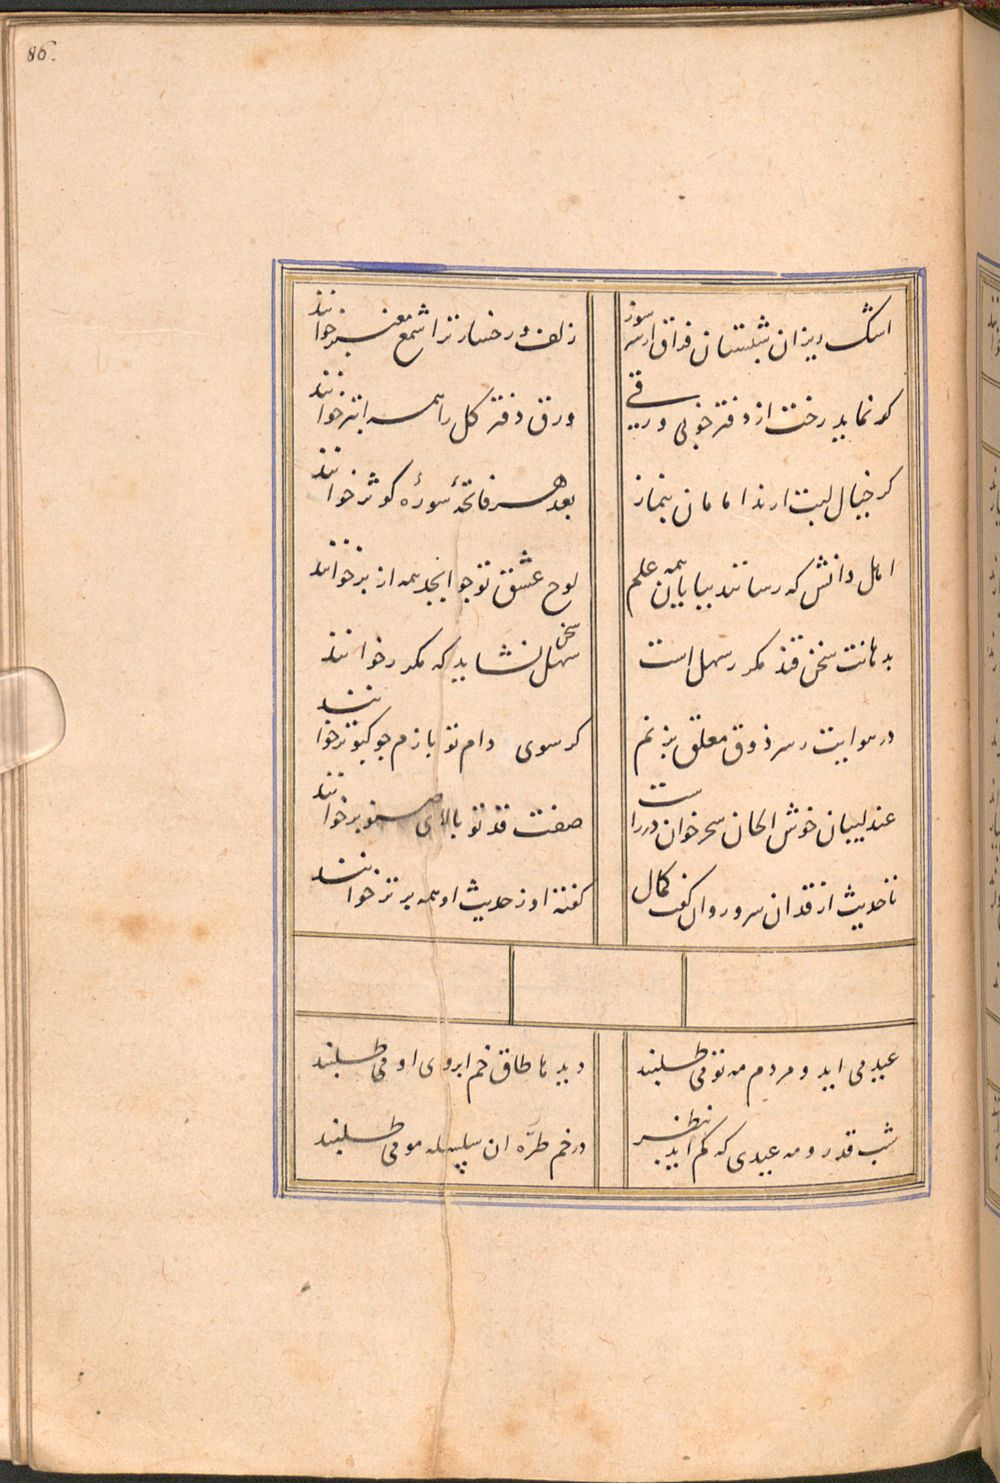 86.
اشک ریزان شبستان فراق از سر سوز
زلف و رخسار ترا شمع معنبر خوانند
گر نماید رخت از دفتر خوبی ورقی
ورق دفتر گل را همه ابتر خوانند
گر خیال لبت ارند امامان بنماز
بعد هر فاتحهٔ سورهٔ کوثر خوانند
اهل دانش که رسانند بپایان همه علم
لوح عشق تو چو ابجد همه از بر خوانند
بدهانت سخن قند مکرر سهل است
سخن سهل نشاید که مکرر خوانند
در هوایت ز سر ذوق معلق بزنم
گر سوی دام تو بازم چو کبوتر خوانند
عندلیبان خوش الحان سحر خوان در راست
صفت قد تو بالای صنوبر خوانند
تا حدیث از قد ان سرو روان گفت کمال
گفته او ز حدیث او همه برتر خوانند
عید می اید و مردم مه نو می طلبند
دیدها طاق خم ابروی او می طلبند
شب قدر و مه عیدی که کم اید بنظر
در خم طرّه ان سلسله مو می طلبند